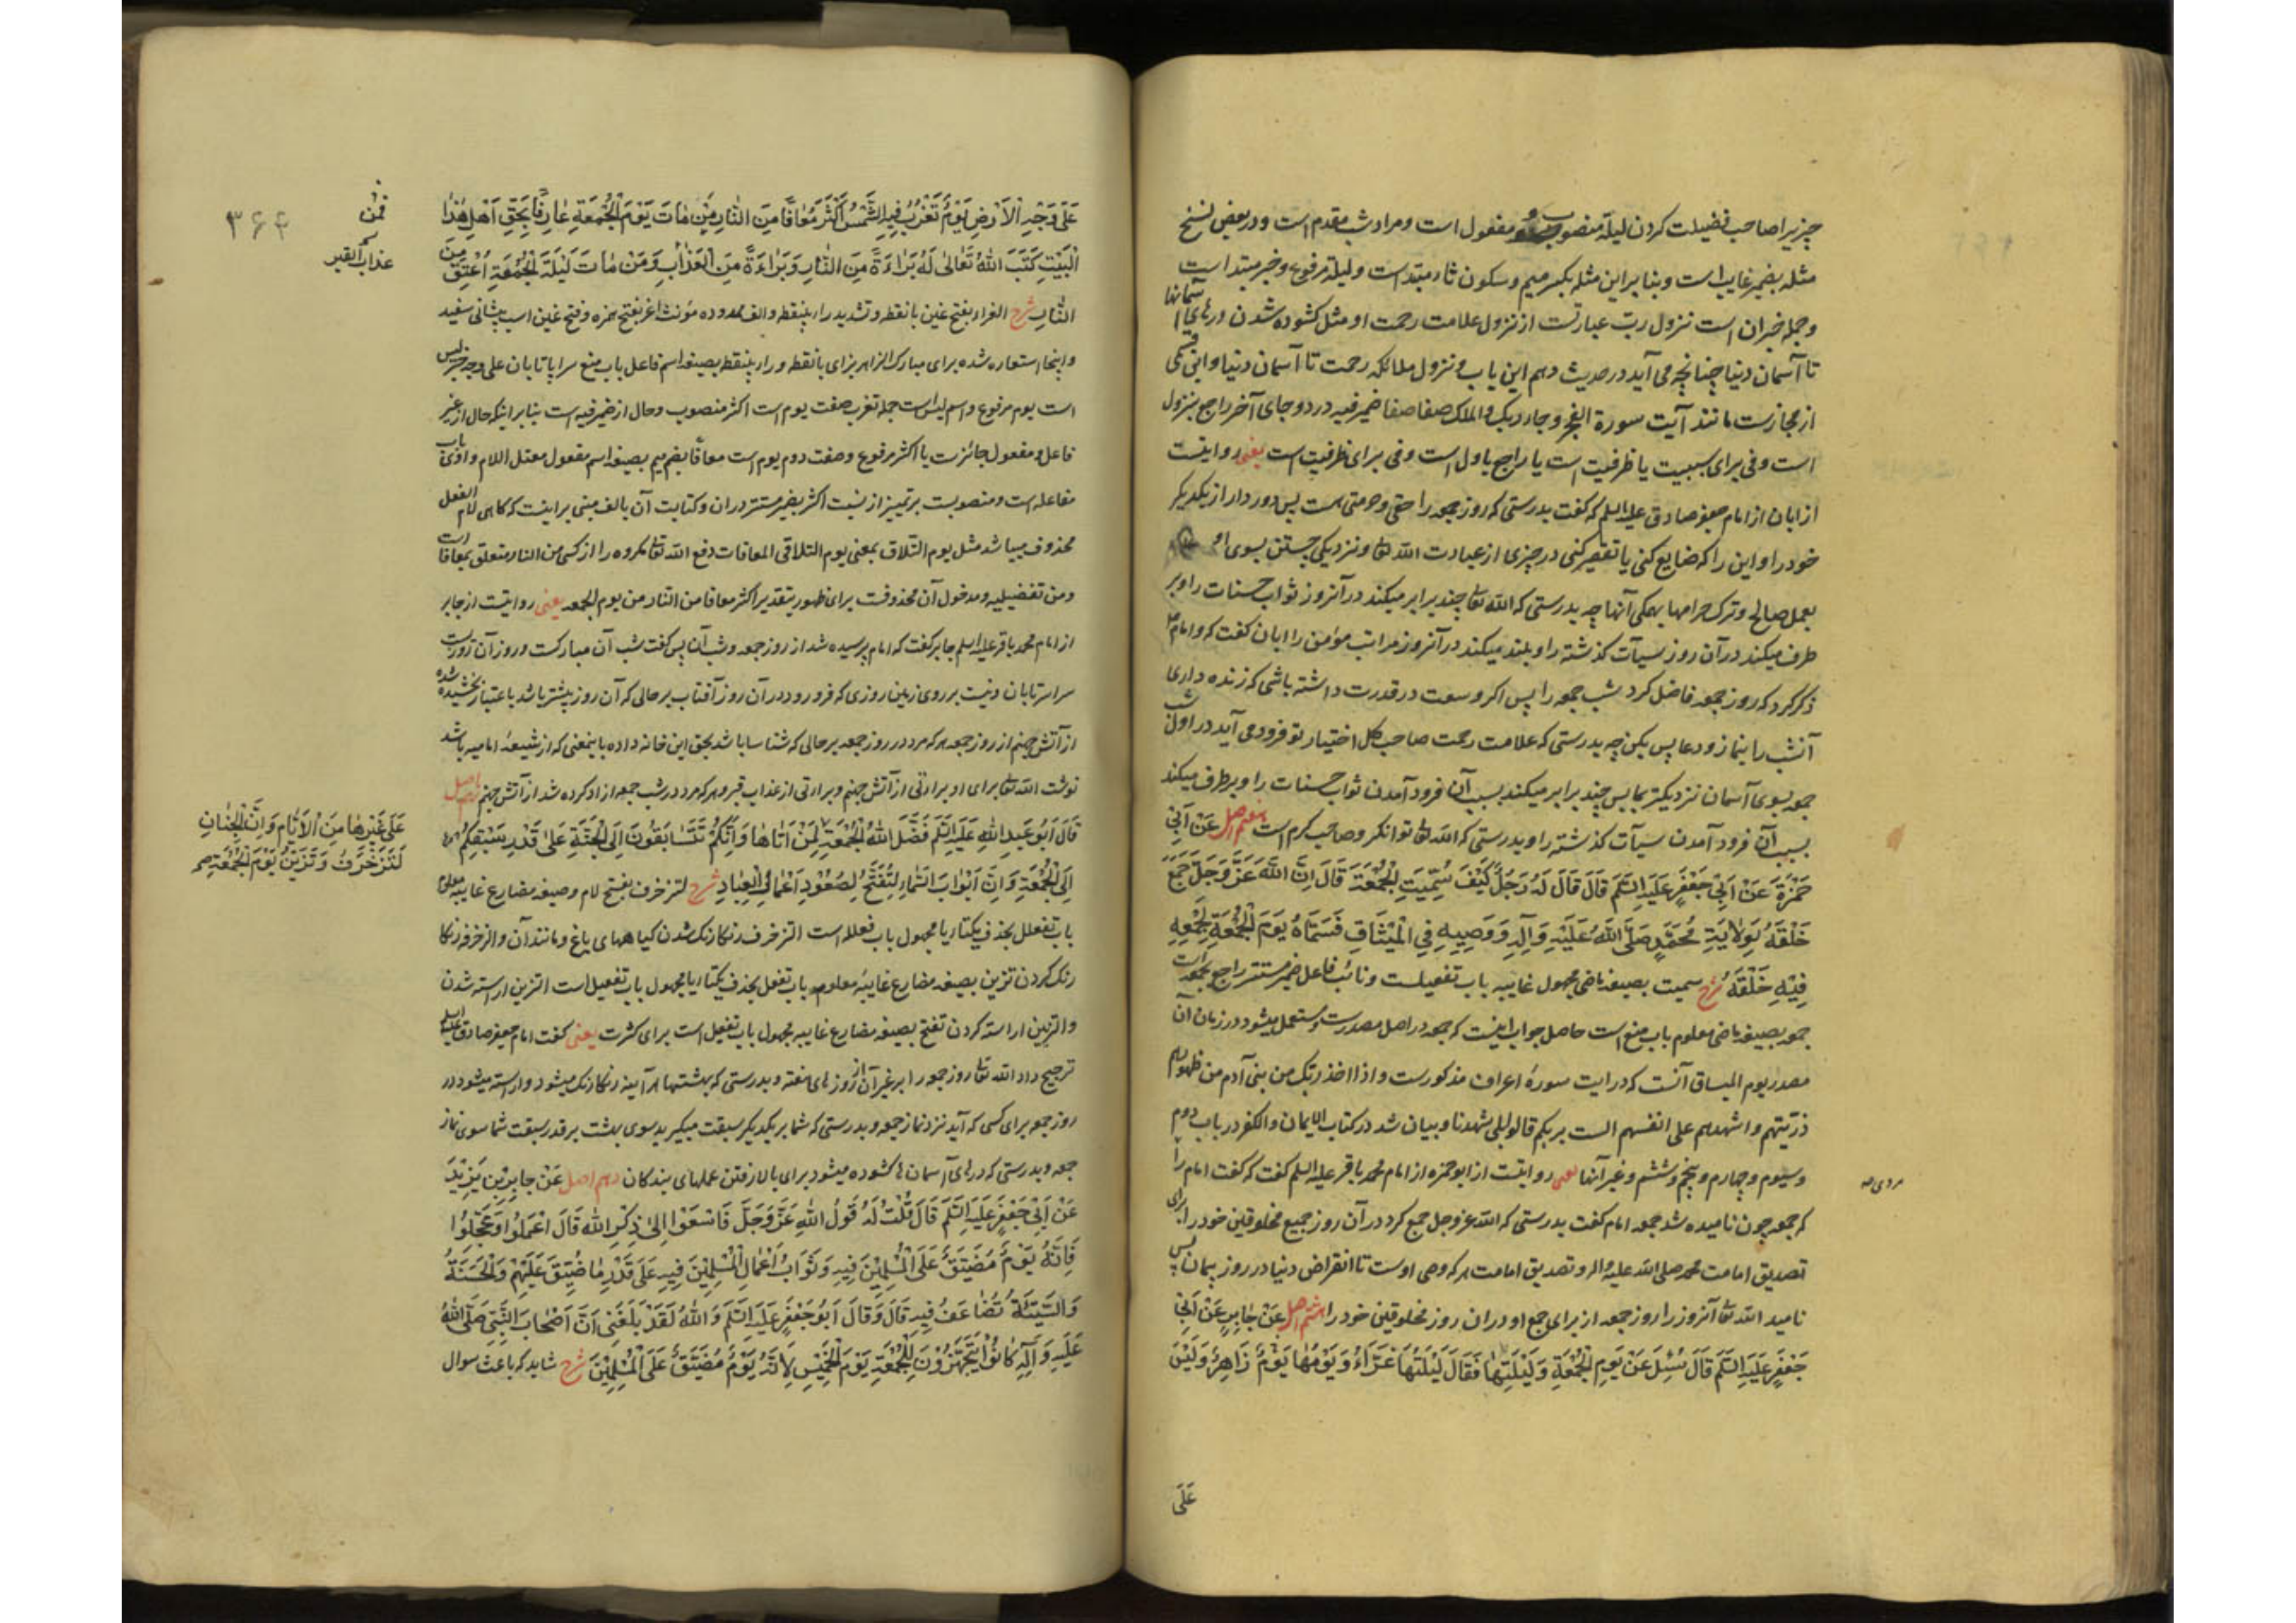 چیزیرا صاحب فضیلت کردن لیلة منصوب و مفعول است و مراد شب مقدم است و در بعض نسخ
مثله بضمیر غایب است و بنا بر این مثله بکسر میم و سکون ثاء مبتداست و لیلة مرفوع و خبر مبتدا است
و جمله خبر ان است نزول ربّ عبارتست از نزول علامت رحمت او مثل کشوده شدن درهای آسمانها
تا آسمان دنیا چنانچه می آید در حدیث دهم این باب و نزول ملائکه رحمت تا آسمان دنیا و این قسمی
از مجازست مانند آیت سورة الفجر و جاء ربک و الملک صفا صفا ضمیر فیه در دو جای آخر راجع بنزول
است و فی برای سببیت یا ظرفیت است یا راجع باول است و فی برای ظرفیت است یعنی روایتست
از ابان از امام جعفر صادق علیه السلم که گفت بدرستی که روز جمعه را حقی و حرمتی هست پس دور دار از یکدیکر
خود را و این را که ضایع کنی یا تقصیر کنی در چیزی از عبادت الله تعالی و نزدیکی جستن بسوی او
بعمل صالح و ترک حرامها بهمکی آنها چه بدرستی که الله تعالی چند برابر میکند در آنروز ثواب حسنات را و بر
طرف میکند در آن روز سیآت کذشته را و بلند میکند در آنروز مراتب مؤمن را ابان گفت که و امام
ذکر کرد که روز جمعه فاضل کرد شب جمعه را پس اکر وسعت در قدرت داشته باشی که زنده داری
آنشب را بنماز و دعا پس بکن چه بدرستی که علامت رحمت صاحب کل اختیار تو فرود می آید در اول شب
جمعه بسوی آسمان نزدیکتر بما پس چند برابر میکند بسبب آن فرود آمدن ثواب حسنات را و برطرف میکند
بسبب آن فرود آمدن سیآت کذشته را و بدرستی که الله تعالی توانکر و صاحب کرم است هفتم اصل عَنْ اَبِی
حَمْزَةَ عَنْ اَبِی جَعْفَرٍ عَلَیْهِ السَّلَمُ قَالَ قَالَ لَهُ رَجُلٌ کَیْفَ سُمِّیَتِ الْجُمُعَةُ قَالَ اِنَّ اللهَ عَزَّ وَجَلَّ جَمَعَ
خَلْقَهُ لِوِلَایَةِ مُحَمَّدٍ صَلَّی اللهُ عَلَیْهِ وَآلِهِ وَوَصِیِّهِ فِی الْمِیْثَاقِ فَسَمَّاهُ یَوْمَ الْجُمُعَةِ لِجَمْعِهِ
فِیْهِ خَلْقَهُ شرح سمیت بصیغه ماضی مجهول غایبه باب تفعیلست و نائب فاعل ضمیر مستتر راجع بجمعه است
جمع بصیغه ماضی معلوم باب منع است حاصل جواب اینست که جمعه در اصل مصدرست و مستعمل میشود در زمان آن
مصدر یوم المیثاق آنست که در آیت سورهٔ اعراف مذکورست و اذ اخذ ربک من بنی آدم من ظهورهم
ذریتهم و اشهدهم علی انفسهم الست بربکم قالوا بلی شهدنا و بیان شد در کتاب الایمان و الکفر در باب دوم
و سیوم و چهارم و پنجم و ششم و غیر آنها یعنی روایتست از ابو حمزه از امام محمد باقر علیه السلم گفت که گفت امام را
مردی
که جمعه چون نامیده شد جمعه امام گفت بدرستی که الله عز و جل جمع کرد در آن روز جمیع مخلوقین خود را برای
تصدیق امامت محمد صلی الله علیه و اله و تصدیق امامت هر که وصی اوست تا انقراض دنیا در روز پیمان پس
نامید الله تعالی آنروز را روز جمعه از برای جمع او در ان روز مخلوقین خود را هشتم اصل عَنْ جَابِرٍ عَنْ اَبِی
جَعْفَرٍ عَلَیْهِ السَّلَمُ قَالَ سُئِلَ عَنْ یَوْمِ الْجُمُعَةِ وَلَیْلَتِهَا فَقَالَ لَیْلَتُهَا غَرَّاءُ وَیَوْمُهَا یَوْمٌ زَاهِرٌ وَلَیْسَ
عَلَی
۳۶۴
عَلَی وَجْهِ الْاَرْضِ یَوْمٌ تَغْرُبُ فِیهِ الشَّمْسُ اَکْثَرَ مُعَافًا مِنَ النَّارِ مِنْ مَاتَ یَوْمَ الْجُمُعَةِ عَارِفًا بِحَقِّ اَهْلِ هٰذَا
فمن
الْبَیْتِ کَتَبَ اللهُ تَعَالٰی لَهُ بَرَاءَةً مِنَ النَّارِ وَبَرَاءَةً مِنَ الْعَذَابِ وَمَنْ مَاتَ لَیْلَةَ الْجُمُعَةِ اُعْتِقَ مِنَ
عذاب القبر
النَّارِ شرح الغراء بفتح غین با نقطه و تشدید راء بینقطه و الف ممدوده مؤنث اغر بفتح همزه و فتح غین اسب پیشانی سفید
و اینجا استعاره شده برای مبارک الزاهر بزای با نقطه و راء بینقطه بصیغه اسم فاعل باب منع سراپا تابان علی وجه خبر لیس
است یوم مرفوع و اسم لیس است جمله تغرب صفت یوم است اکثر منصوب و حال از ضمیر فیه است بنابر اینکه حال از غیر
فاعل و مفعول جائزست یا اکثر مرفوع و صفت دوم یوم است معافا بضم میم بصیغه اسم مفعول معتل اللام واوی باب
مفاعله است و منصوبست بر تمییز از نسبت اکثر بضمیر مستتر در ان و کتابت آن بالف مبنی بر اینست که کاهی لام الفعل
محذوف میباشد مثل یوم التلاق بمعنی یوم التلاقی المعافات دفع الله تعالی مکروه را از کسی من النار متعلق بمعافا است
و من تفضیلیه و مدخول آن محذوفست برای ظهور بتقدیر اکثر معافا من النار من یوم الجمعه یعنی روایتست از جابر
از امام محمد باقر علیه السلم جابر گفت که امام پرسیده شد از روز جمعه و شب آن پس گفت شب آن مبارکست و روز آن روزیست
سراسر تابان و نیست بر روی زمین روزی که فرو رود در آن روز آفتاب بر حالی که آن روز بیشتر باشد باعتبار بخشیده شده
از آتش جهنم از روز جمعه هر که مرد در روز جمعه بر حالی که شناسا باشد بحق این خانه داده باینمعنی که از شیعهٔ امامیه باشد
نوشت الله تعالی برای او براءتی از آتش جهنم و براءتی از عذاب قبر و هر که مرد در شب جمعه ازاد کرده شد از آتش جهنم نهم اصل
قَالَ اَبُو عَبْدِ اللهِ عَلَیْهِ السَّلَمُ فَضَّلَ اللهُ الْجُمُعَةَ لِمَنْ اَتَاهَا وَاِنَّکُمْ تَتَسَابَقُونَ اِلَی الْجَنَّةِ عَلٰی قَدْرِ سَبْقِکُمْ
عَلَی غَیْرِهَا مِنَ الْاَیَّامِ وَاِنَّ الْجِنَانَ
لَتُزَخْرَفُ وَتُزَیَّنُ یَوْمَ الْجُمُعَةِ صح
اِلَی الْجُمُعَةِ وَاِنَّ اَبْوَابَ السَّمَاءِ لَتُفَتَّحُ لِصُعُوْدِ اَعْمَالِ الْعِبَادِ شرح لتزخرف بفتح لام و صیغه مضارع غایبه معلوم
باب تفعلل بحذف یکتا یا مجهول باب فعلله است التزخرف رنکارنک شدن کیاههای باغ و مانند آن و الزخرفه رنکا
رنک کردن تزین بصیغه مضارع غایبهٔ معلوم باب تفعل بحذف یکتا یا مجهول باب تفعیل است التزین اراسته شدن
و التزیین اراسته کردن تفتح بصیغه مضارع غایبه مجهول باب تفعیل است برای کثرت یعنی گفت امام جعفر صادق علیه السلم
ترجیح داد الله تعالی روز جمعه را بر غیر آن از روزهای هفته و بدرستی که بهشتها هر آینه رنکارنک میشود و اراسته میشود در
روز جمعه برای کسی که آید نزد نماز جمعه و بدرستی که شما بر یکدیکر سبقت میکیرید بسوی بهشت بر قدر سبقت شما سوی نماز
جمعه و بدرستی که درهای آسمان ها کشوده میشود برای بالا رفتن عملهای بندکان دهم اصل عَنْ جَابِرِ بْنِ یَزِیْدَ
عَنْ اَبِی جَعْفَرٍ عَلَیْهِ السَّلَمُ قَالَ قُلْتُ لَهُ قَوْلُ اللهِ عَزَّ وَجَلَّ فَاسْعَوْا اِلٰی ذِکْرِ اللهِ قَالَ اعْمَلُوا وَعَجِّلُوا
فَاِنَّهُ یَوْمٌ مُضَیَّقٌ عَلَی الْمُسْلِمِیْنَ فِیهِ وَثَوَابُ اَعْمَالِ الْمُسْلِمِیْنَ فِیهِ عَلَی قَدْرِ مَا ضُیِّقَ عَلَیْهِمْ وَالْحَسَنَةُ
وَالسَّیِّئَةُ تُضَاعَفُ فِیهِ قَالَ وَقَالَ اَبُو جَعْفَرٍ عَلَیْهِ السَّلَمُ وَاللهِ لَقَدْ بَلَغَنِی اَنَّ اَصْحَابَ النَّبِیِّ صَلَّی اللهُ
عَلَیْهِ وَآلِهِ کَانُوْا یَتَجَهَّزُوْنَ لِلْجُمُعَةِ یَوْمَ الْخَمِیْسِ لِاَنَّهُ یَوْمٌ مُضَیَّقٌ عَلَی الْمُسْلِمِیْنَ شرح شاید که باعث سوال